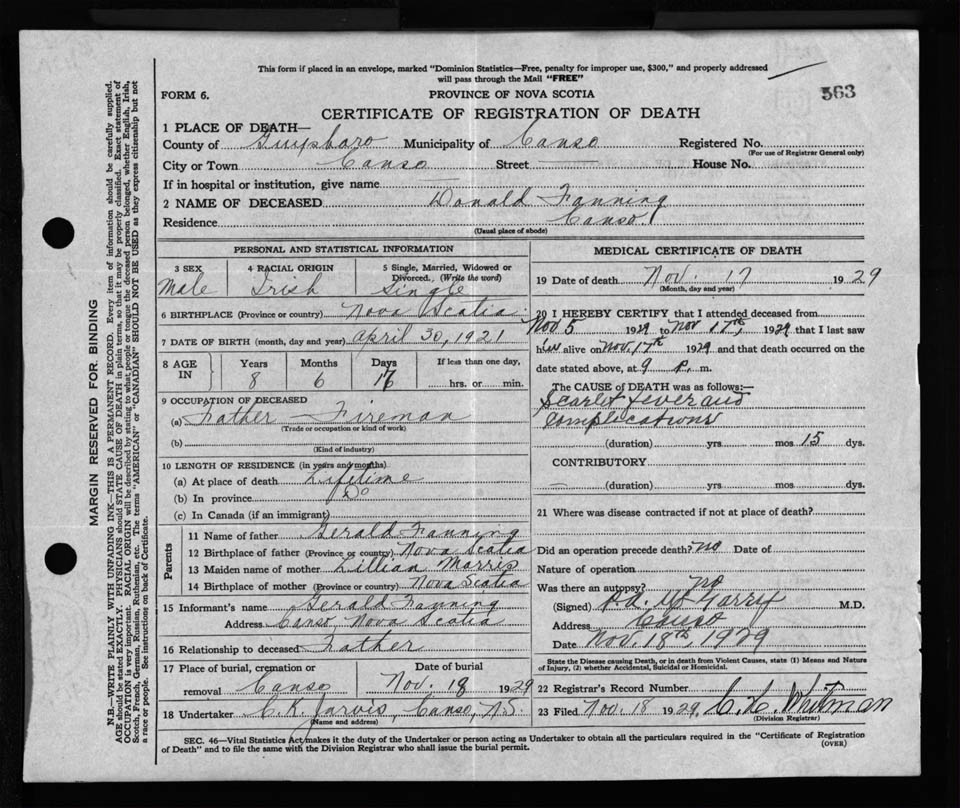 This form if placed in an envelope, marked "Dominion Statistics—Free, penalty for improper use, $300," and properly addressed
will pass through the Mail "FREE"
FORM 6.
PROVINCE OF NOVA SCOTIA
563
CERTIFICATE OF REGISTRATION OF DEATH
1 PLACE OF DEATH—
County of Guysboro Municipality of Canso Registered No.
(For use of Registrar General only)
City or Town Canso Street House No.
If in hospital or institution, give name
2 NAME OF DECEASED Donald Fanning
Residence Canso
(Usual place of abode)
PERSONAL AND STATISTICAL INFORMATION
3 SEX 4 RACIAL ORIGIN 5 Single, Married, Widowed or
Divorced. (Write the word)
Male Irish Single
6 BIRTHPLACE (Province or country) Nova Scotia
7 DATE OF BIRTH (month, day and year) April 30, 1921
8 AGE IN Years Months Days If less than one day,
8 6 hrs. or min.
9 OCCUPATION OF DECEASED
(a) Father Fireman
(Trade or occupation or kind of work)
(b)
(Kind of industry)
10 LENGTH OF RESIDENCE (in years and months)
(a) At place of death Lifetime
(b) In province Do
(c) In Canada (if an immigrant)
Parents
11 Name of father Gerald Fanning
12 Birthplace of father (Province or country) Nova Scotia
13 Maiden name of mother Lillian Morris
14 Birthplace of mother (Province or country) Nova Scotia
15 Informant's name Gerald Fanning
Address Canso, Nova Scotia
16 Relationship to deceased Father
17 Place of burial, cremation or Date of burial
removal Canso Nov. 18 1929
18 Undertaker C. K. Jarvis, Canso, N.S.
(Name and address)
MEDICAL CERTIFICATE OF DEATH
19 Date of death Nov. 17 1929
(Month, day and year)
20 I HEREBY CERTIFY that I attended deceased from
Nov 5 1929 to Nov 17th, 1929 that I last saw
him alive on Nov. 17th 1929 and that death occurred on the
date stated above, at 9 p. m.
The CAUSE OF DEATH was as follows:—
Scarlet fever and
Complications
(duration) yrs mos 15 dys.
CONTRIBUTORY
(duration) yrs. mos. dys.
21 Where was disease contracted if not at place of death?
Did an operation precede death? no Date of
Nature of operation
Was there an autopsy? no
(Signed) M.D.
Address Canso
Date Nov. 18th, 1929
State the Disease causing Death, or in death from Violent Causes, state (1) Means and Nature
of Injury, (2) whether Accidental, Suicidal or Homicidal.
22 Registrar's Record Number
23 Filed Nov. 18 1929, Whitman
(Division Registrar)
SEC. 46—Vital Statistics Act makes it the duty of the Undertaker or person acting as Undertaker to obtain all the particulars required in the "Certificate of Registration
of Death" and to file the same with the Division Registrar who shall issue the burial permit.
(OVER)
MARGIN RESERVED FOR BINDING
N.B.—WRITE PLAINLY WITH UNFADING INK—THIS IS A PERMANENT RECORD. Every item of information should be carefully supplied.
AGE should be stated EXACTLY. PHYSICIANS should STATE CAUSE OF DEATH in plain terms, so that it may be properly classified. Exact statement of
OCCUPATION is very important. RACIAL ORIGIN will be described by stating to what people or tongue the deceased person belonged, whether English, Irish,
Scotch, French, German, Russian, Ruthenian, etc. The terms "AMERICAN" or "CANADIAN" SHOULD NOT BE USED as they express citizenship but not
a race or people. See instructions on back of Certificate.